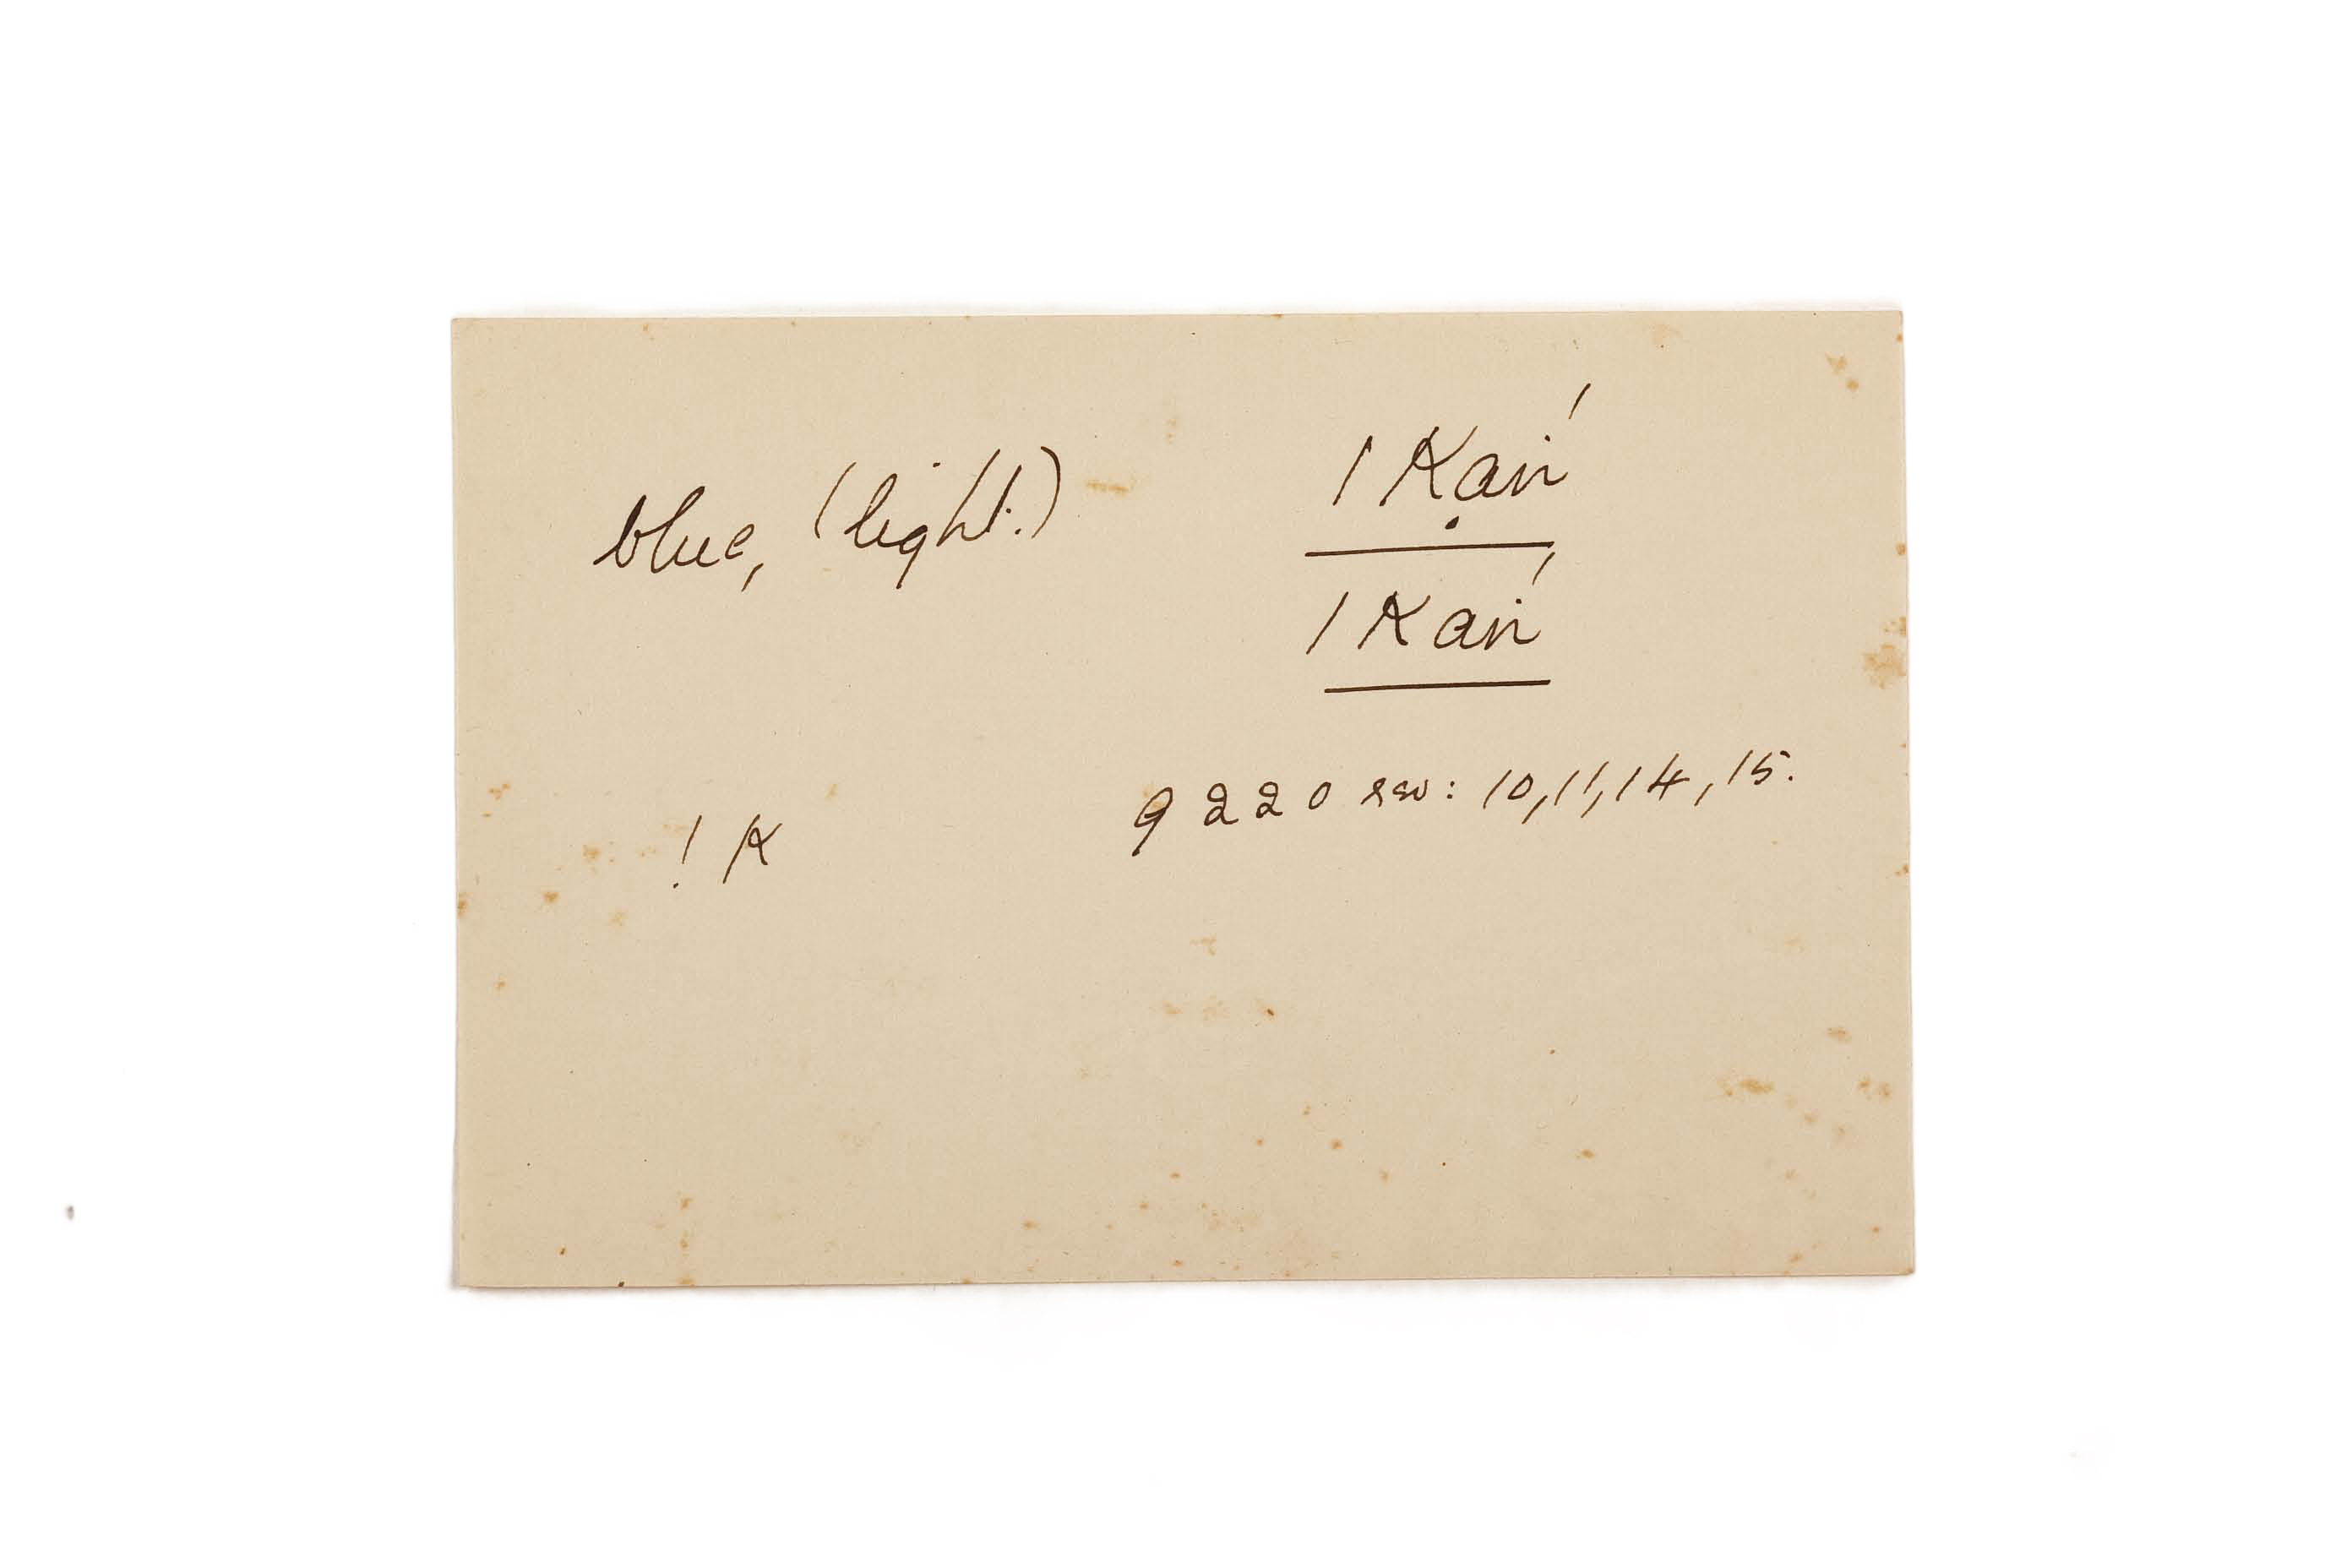 blue, (light.) | Kaiń
| Kaiń
! K 9220 rev: 10, 11, 14, 15.